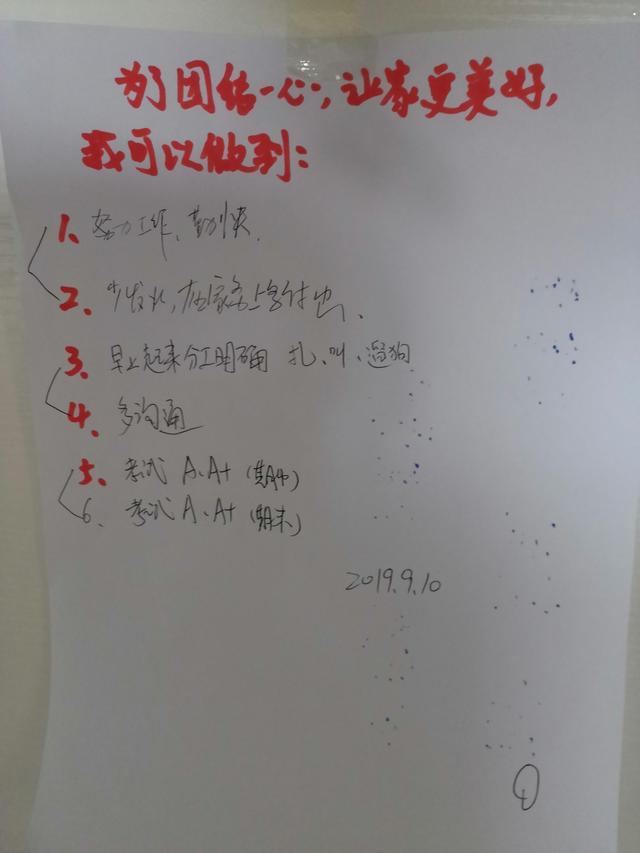 为了团结一心,让家更美好,
我可以做到:
1、努力工作、勤快.
2、少发火,在家务上多付出、
3、早上起来分工明确 扎、叫、遛狗
4、多沟通
5、考试 A、A+ (期中)
6、考试 A、A+ (期末)
2019.9.10
①